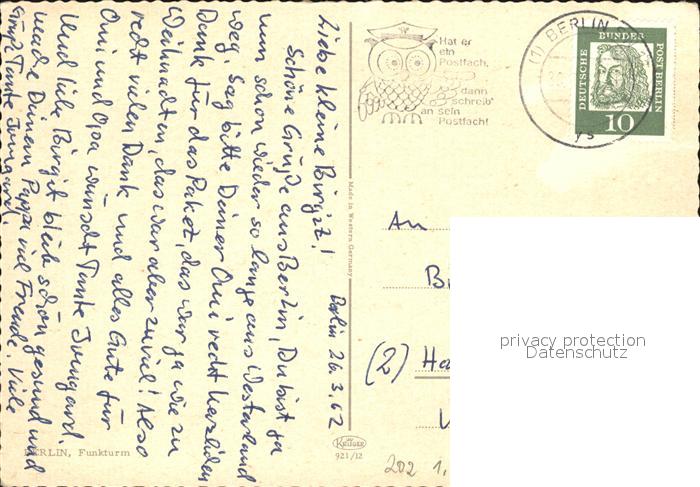 Liebe kleine Birgit!
Berlin 26.3.62
Schöne Grüße aus Berlin, Du bist ja
nun schon wieder so lange aus Westerland
weg. Sag bitte Deiner Omi recht herzlichen
Dank für das Paket, das war ja wie zu
Weihnachten, das war aber zuviel! Also
recht vielen Dank und alles Gute für
Omi und Opa wünscht Tante Irmgard.
Und liebe Birgit bleib schön gesund und
mache Deinem Pappi viel Freude. Viele
Grüße Tante Irmgard
BERLIN, Funkturm
Made in Western Germany
KRÜGER
921/12
Hat er
ein
Postfach,
dann
schreib'
an sein
Postfach!
(1) BERLIN
DEUTSCHE
BUNDES
POST BERLIN
10
An
(2) Ha
privacy protection
Datenschutz
202 1.